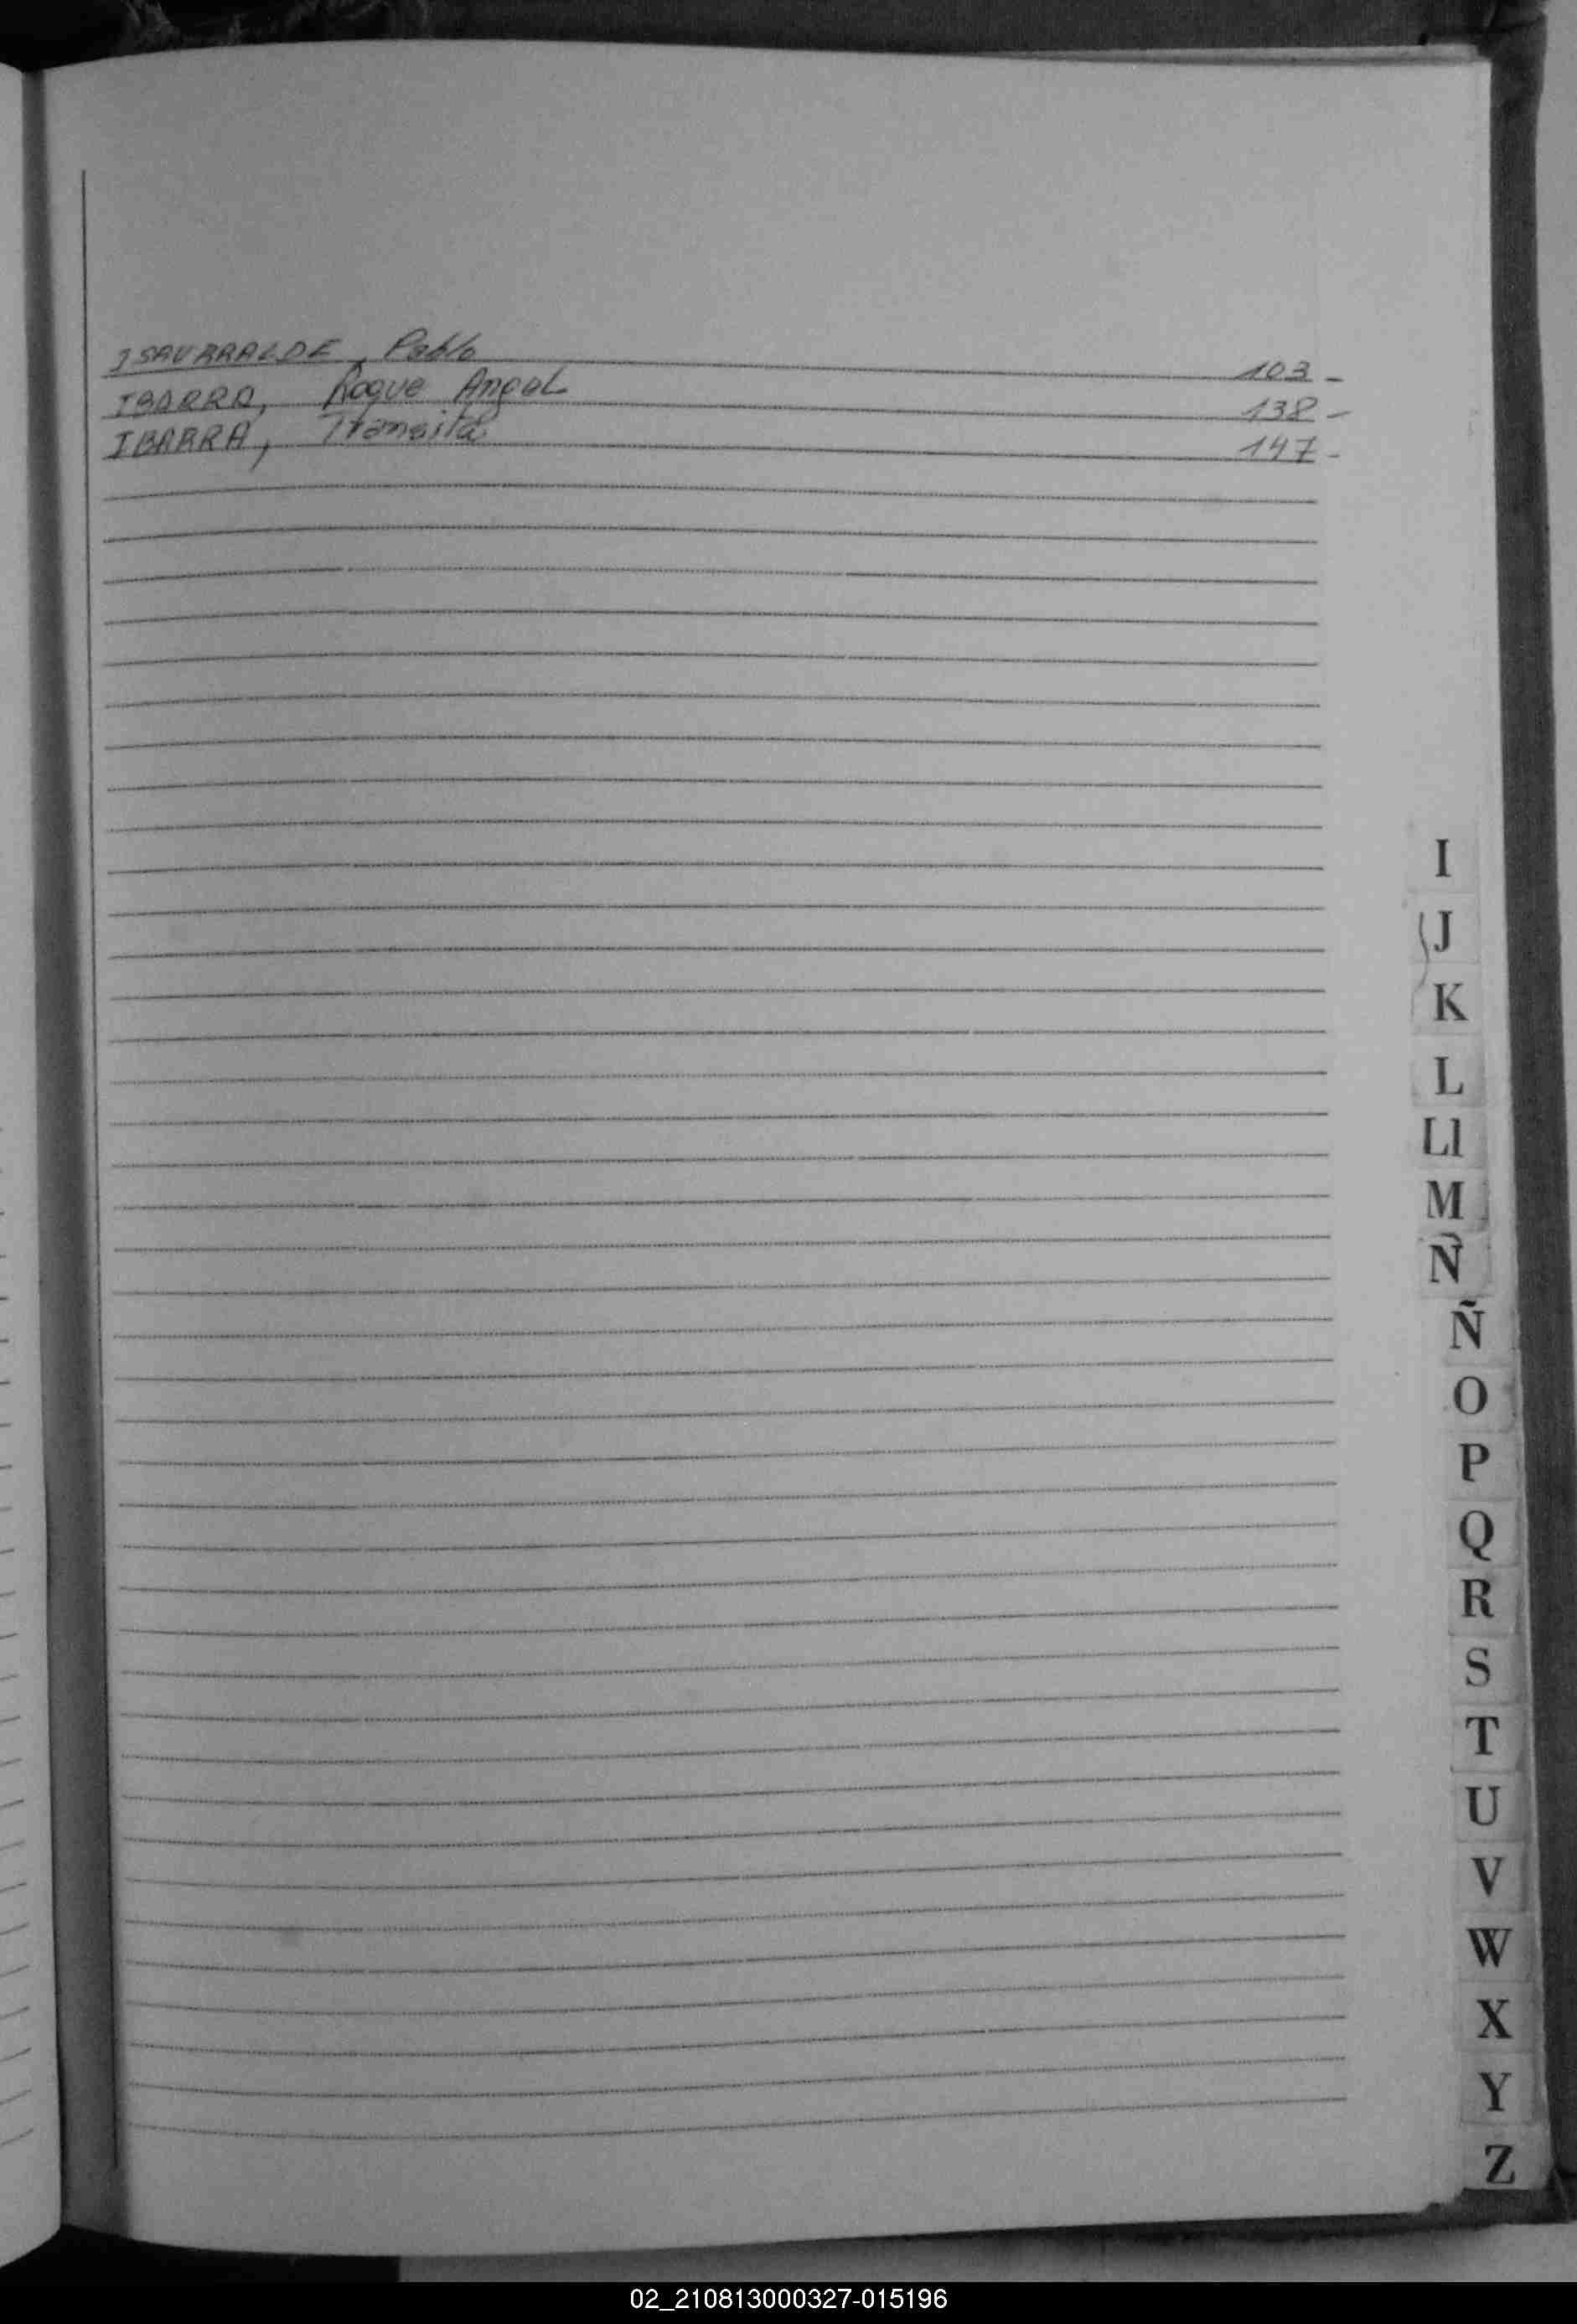 ISAURRALDE, Pablo 103-
IBARRA, Roque Angel 138-
IBARRA, Transita 147-
I
J
K
L
Ll
M
N
Ñ
O
P
Q
R
S
T
U
V
W
X
Y
Z
02_210813000327-015196